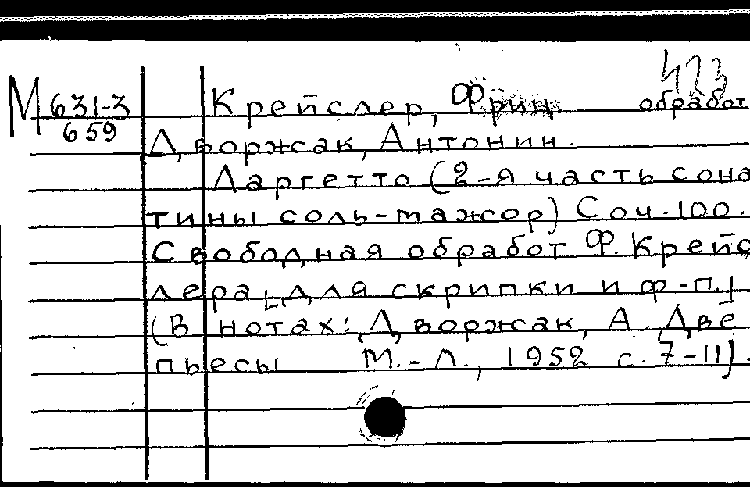 423
М 631-3
659
Крейслер, Фриц обработ
Дворжак, Антонин.
Ларгетто (2-я часть сона
тины соль-мажор) Соч. 100.
Свободная обработ Ф. Крейс
лера, для скрипки и ф-п.
(В нотах: Дворжак, А. Две
пьесы М.-Л., 1952 с. 7-11).